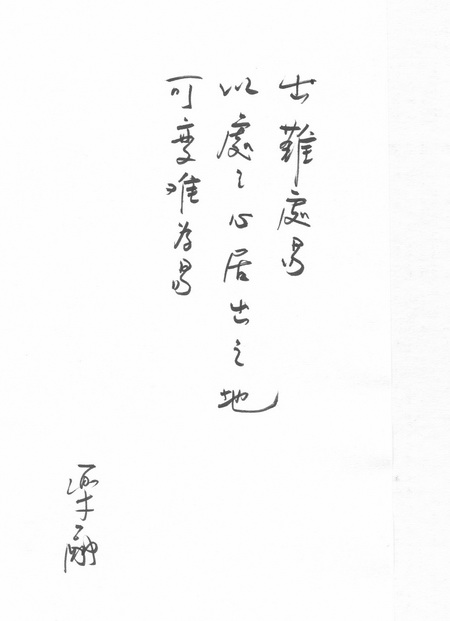 出難處易
以處之心居出之地
可变难为易